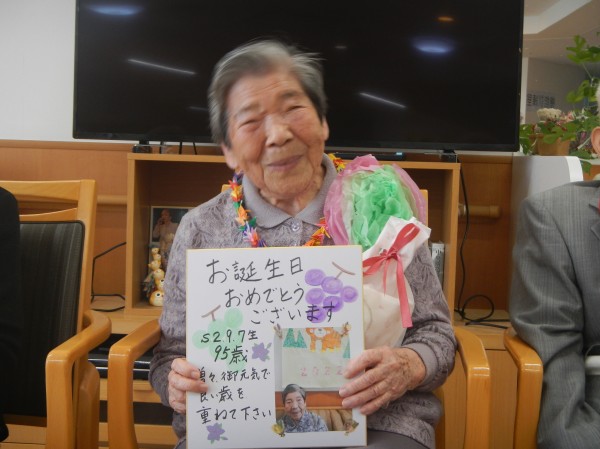 お誕生日
おめでとう
ございます
S2.9.7生
95歳
益々御元気で
良い歳を
重ねて下さい
2022